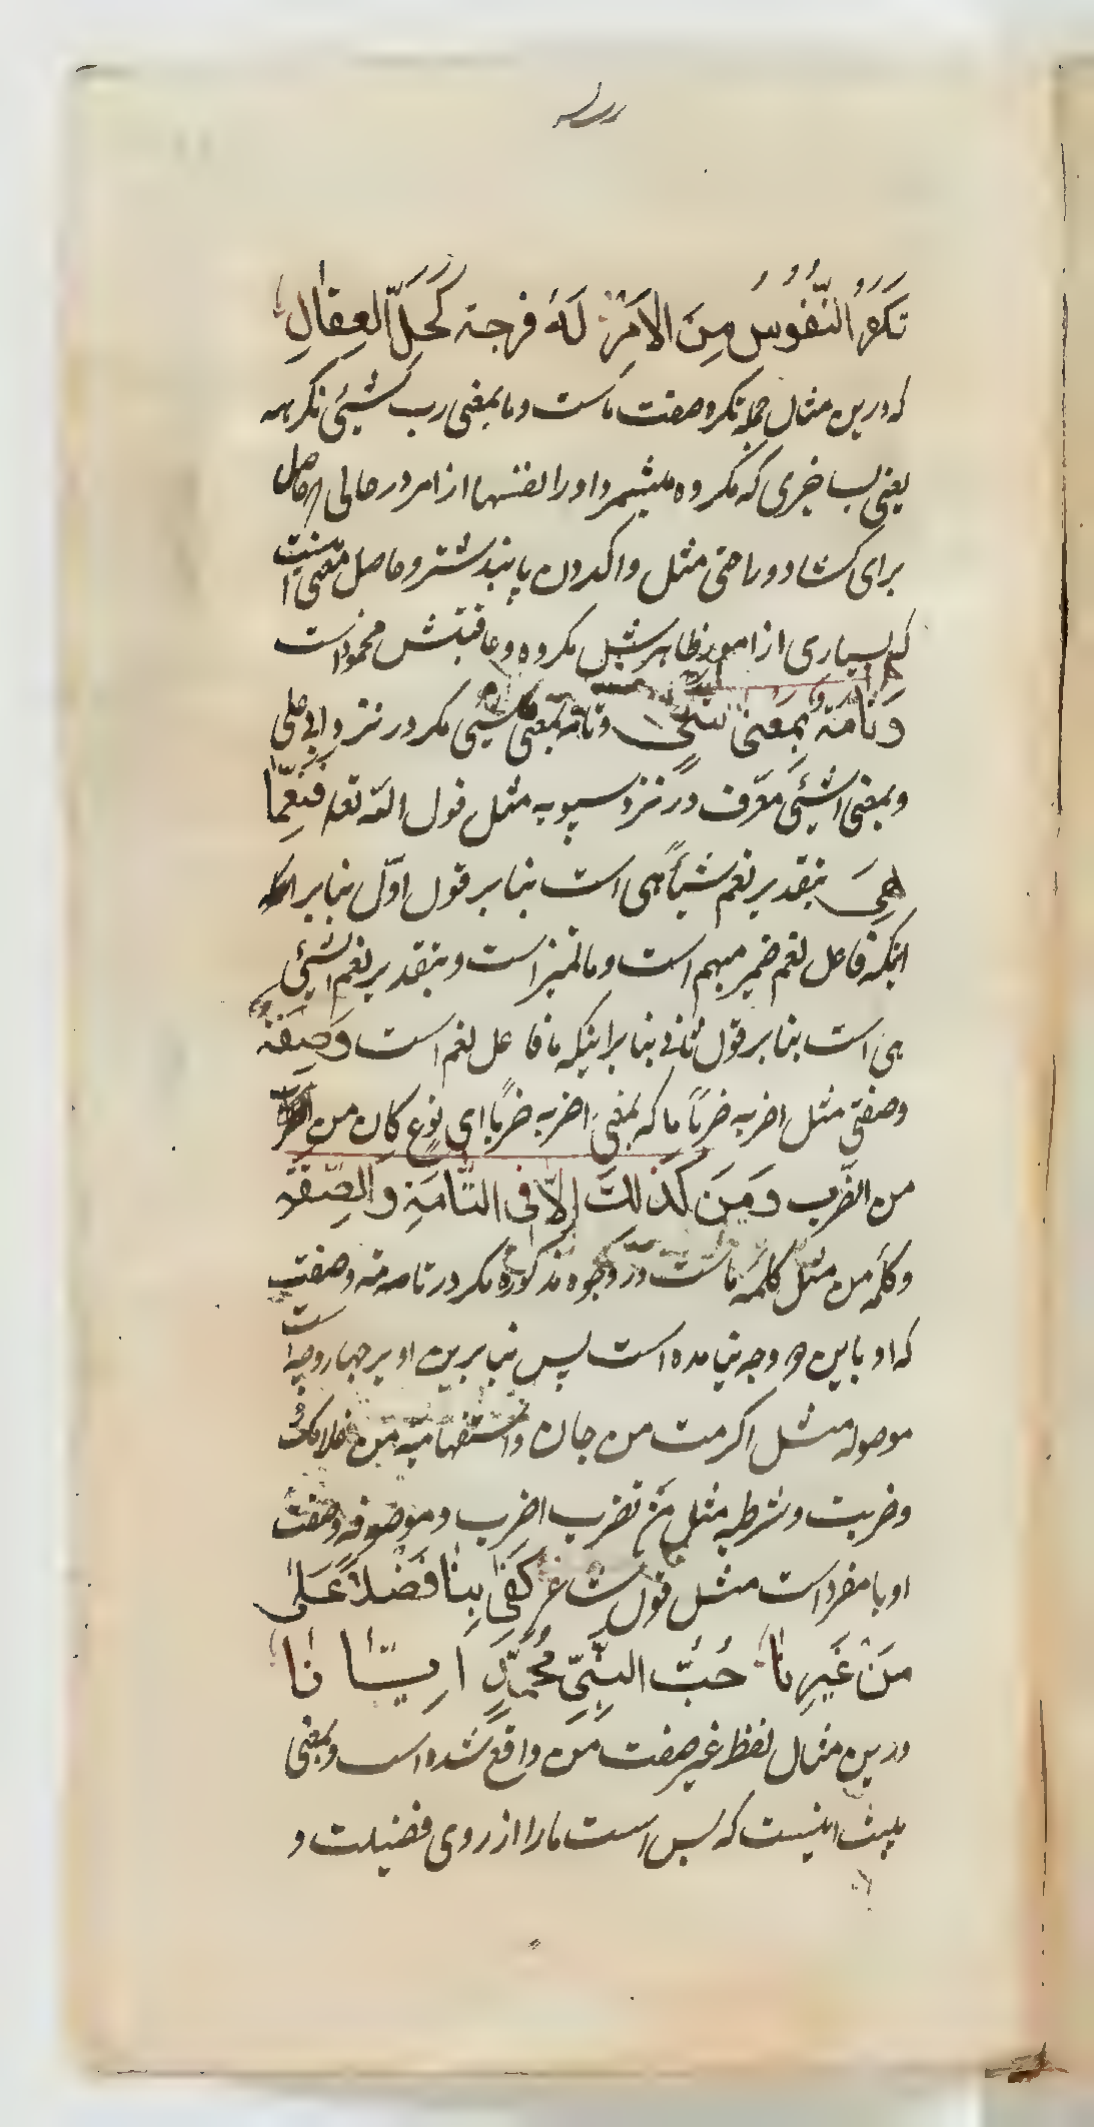 تَکرَهُ النّفُوسُ مِنَ الاَمْرِ لَهُ فرجة کَحَلِّ العِقالِ
که درین مثال جمله تکره صفت ماست و ما بمعنی رب شیئی تکرهه
یعنی بسا چیزی که مکروه میشمرد او را نفسها از امر در حالی که حاصل
برای کشاد و راحتی مثل واکردن پابند شتر و حاصل معنی آنست
که بسیاری از امور ظاهرش مکروه و عاقبتش محمود است
وَتامَةٌ بِمَعنی شیئٍ و تامه بمعنی شیئی مکر در نزد ابی علی
و بمعنی الشیئی معرّف در نزد سیبویه مثل قول الله تعه فَنِعِمّا
هِیَ بتقدیر نعم شیئاً هی است بنا بر قول اوّل بنا بر
اینکه فاعل نعم ضمیر مبهم است و ما تمیز است و بتقدیر نعم الشیئی
هی است بنا بر قول ثانی بنا بر اینکه ما فاعل نعم است وَصِفَة
وصفتی مثل اضربه ضرباً ما که بمعنی اضربه ضرباً ای نوعٍ کان من
من الضّرب وَ مَن کَذٰلِكَ اِلاّ فی التّامَةِ وَالصِّفَة
و کلمه من مثل کلمه ماست در وجوه مذکوره مکر در تامه و صفت
که او باین دو وجه نیامده است پس بنا برین او بر چهار وجه است
موصوله مثل اکرمت من جاءك و استفهامیه مثل من غلامك
و ضربت و شرطیه مثل من تضرب اضرب و موصوفه و صفت
او با مفرد است مثل قول شاعر کَفیٰ بِنا فَضلاً عَلیٰ
مَنْ غَیرِنا حُبُّ النَّبِیِّ مُحَمَّدٍ اِیّانا
درین مثال لفظ غیر صفت من واقع شده است و بمعنی
بیت اینست که بس است ما را از روی فضیلت و